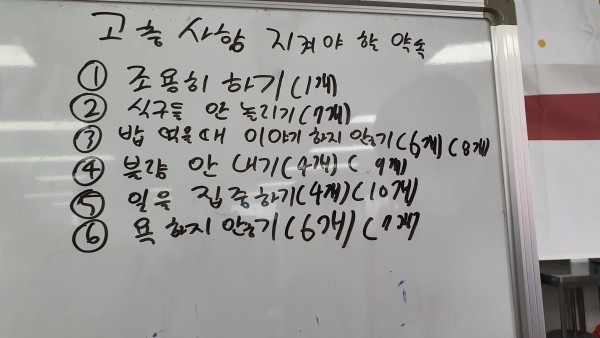 고충사항 지켜야 할 약속
① 조용히 하기(1개)
② 식구들 안 놀리기(7개)
③ 밥 먹을때 이야기 하지 않기(6개)(8개)
④ 불량 안 내기(4개)(9개)
⑤ 일을 집중하기(4개)(10개)
⑥ 욕 하지 않기(6개)(7개)